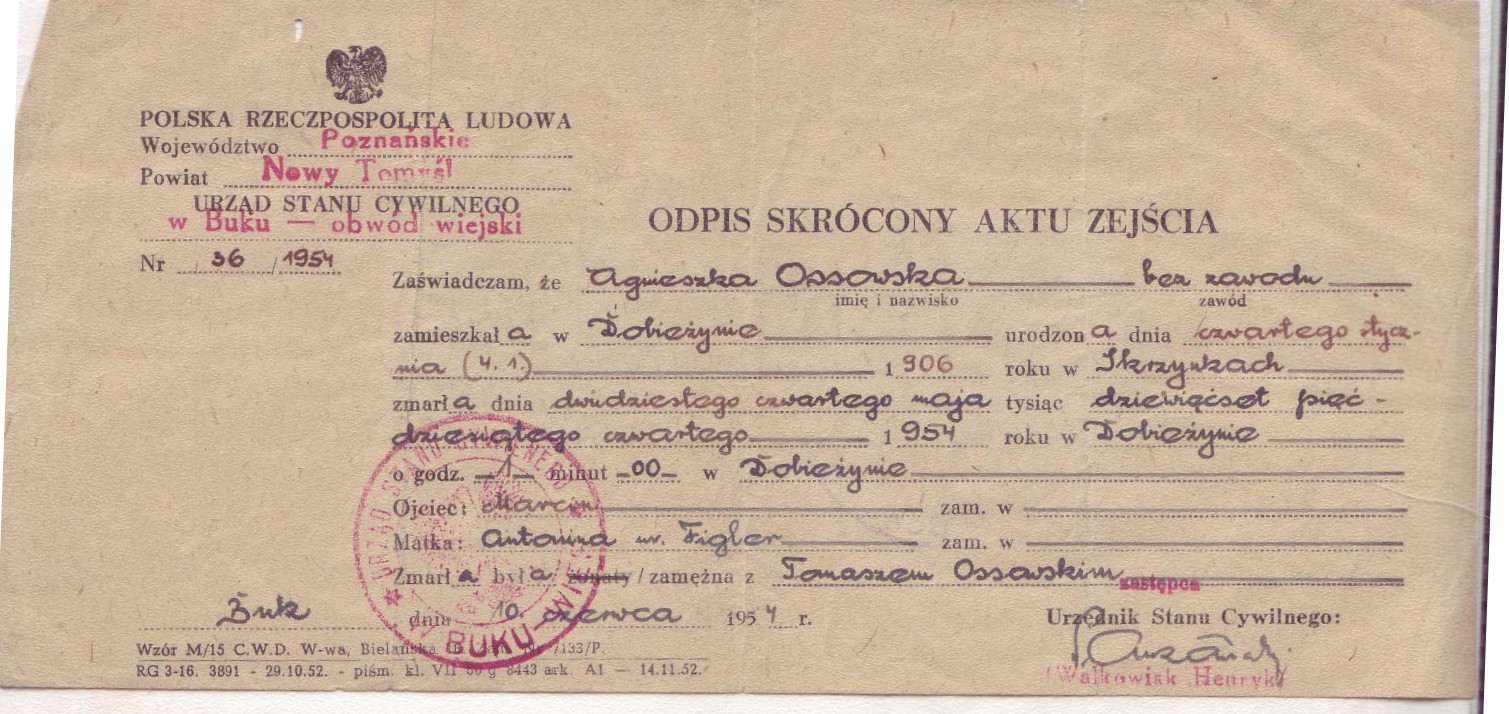 POLSKA RZECZPOSPOLITA LUDOWA
Województwo Poznańskie
Powiat Nowy Tomyśl
URZĄD STANU CYWILNEGO
w Buku — obwód wiejski
Nr 36 / 1954
ODPIS SKRÓCONY AKTU ZEJŚCIA
Zaświadczam, że Agnieszka Ossowska bez zawodu
imię i nazwisko zawód
zamieszkał a w Dobieżynie urodzon a dnia czwartego stycz-
nia (4.1.) 1 906 roku w Skrzynkach
zmarł a dnia dwudziestego czwartego maja tysiąc dziewięćset pięć-
dziesiątego czwartego 1 954 roku w Dobieżynie
o godz. 1 minut 00 w Dobieżynie
Ojciec: Marcin zam. w
Matka: Antonina ur. Figler zam. w
Zmarł a był a żonaty / zamężna z Tomaszem Ossowskim
zastępca
Buk dnia 10 czerwca 195 4 r. Urzędnik Stanu Cywilnego:
(Walkowiak Henryk)
Wzór M/15 C.W.D. W-wa, Bielańska 7133/P.
RG 3-16. 3891 - 29.10.52. - piśm. kl. VII 60 g 8443 ark. A1 — 14.11.52.
URZĄD STANU CYWILNEGO
BUKU